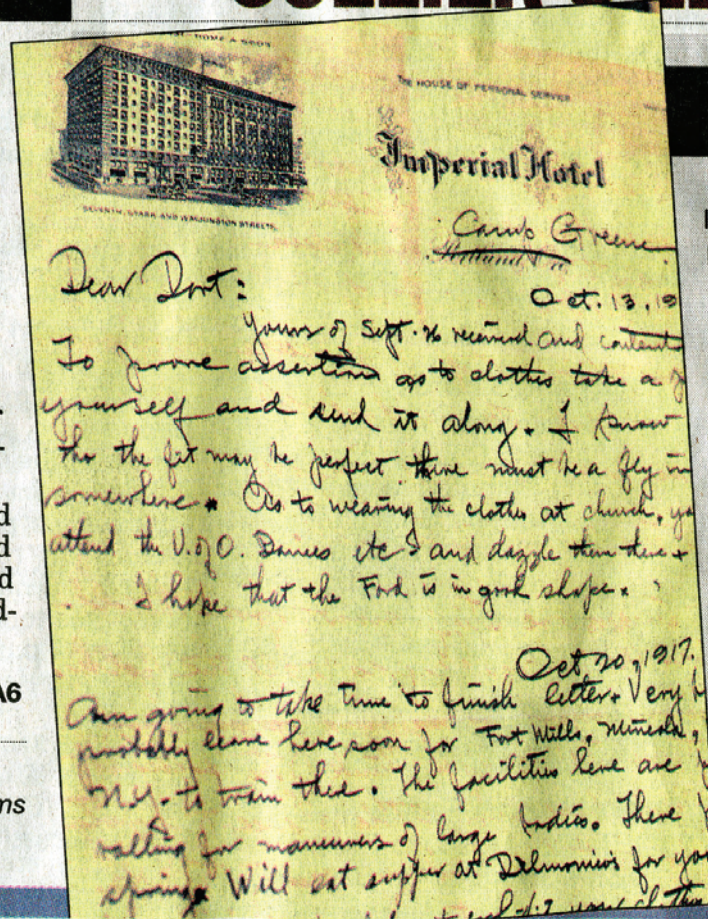 THE HOUSE OF PERSONAL SERVICE
Imperial Hotel
SEVENTH, STARK AND WASHINGTON STREETS.
Camp Greene
Dear Dort:
Oct. 13, 19
Yours of Sept. 26 received and contents
To prove assertion as to clothes take a
yourself and send it along. I know
tho the fit may be perfect there must be a fly in
somewhere. As to wearing the clothes at church, yo
attend the U. of O. Dances etc and dazzle them there
I hope that the Ford is in good shape.
Oct. 20, 1917.
Am going to take time to finish letter. Very
probably leave here soon for Fort Mills, Mineola,
N.Y. to train there. The facilities here are
rolling for maneuvers of large bodies. There
springs Will eat supper at Delmonico's for you
your clothes
A6
d
d
d
d-
ms